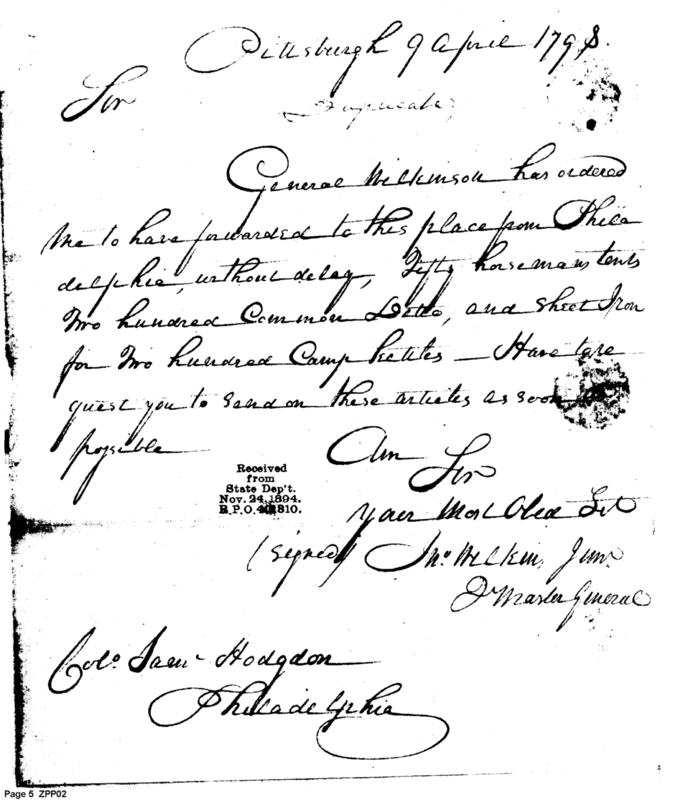 Pittsburgh 9 April 1798.
Sir
Duplicate
General Wilkinson has ordered
me to have forwarded to this place from Phila
delphia, without delay, Fifty horsemans tents
Two hundred Common Ditto, and Sheet Iron
for Two hundred Camp kettles – Have to re
quest you to send on these articles as soon as
possible
Am Sir
Received
from
State Dep't.
Nov. 24, 1894.
R.P.O. 810.
your Most Obed Svt
(signed) Jno. Wilkins Junr
Qr Master General
Colo. Saml Hodgdon
Philadelphia
Page 5 ZPP02